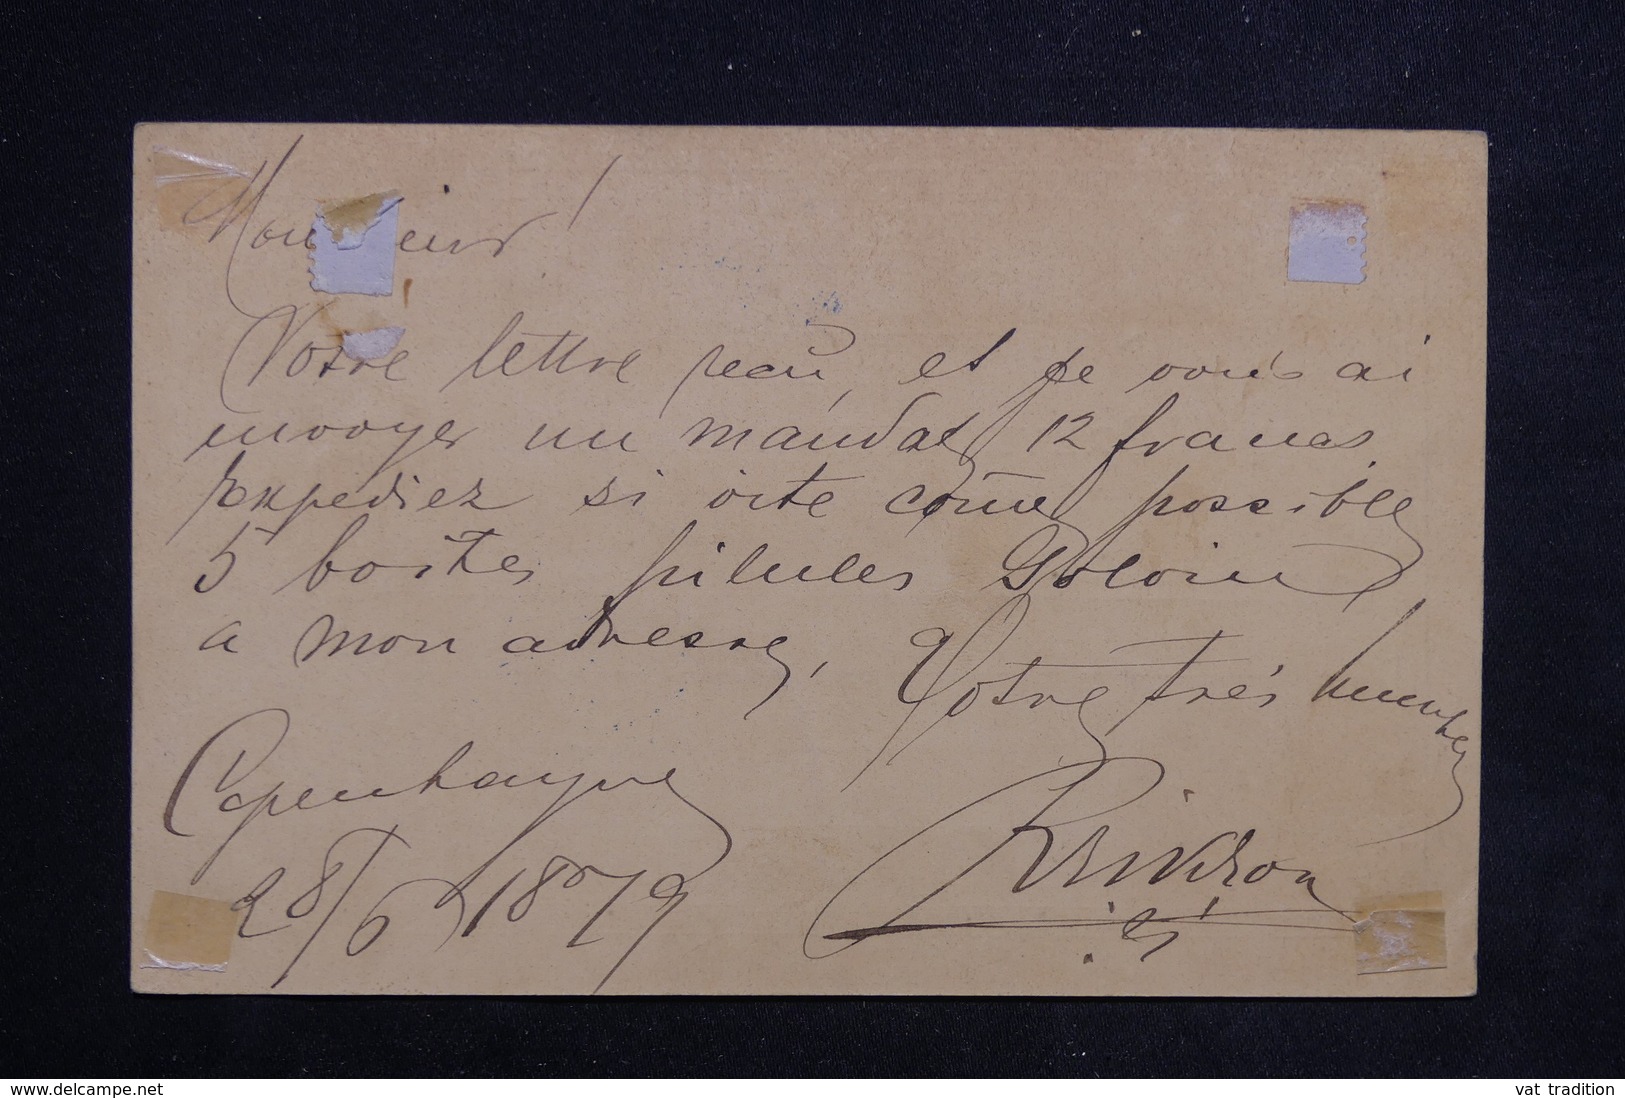 Monsieur!
Votre lettre reçu, et je vous ai
envoyer un mandat 12 francs.
Expediez si vite come possible
5 boites pilules
a mon adresse, Votre très humble
Copenhague
28/6 1879
www.delcampe.net
vat tradition